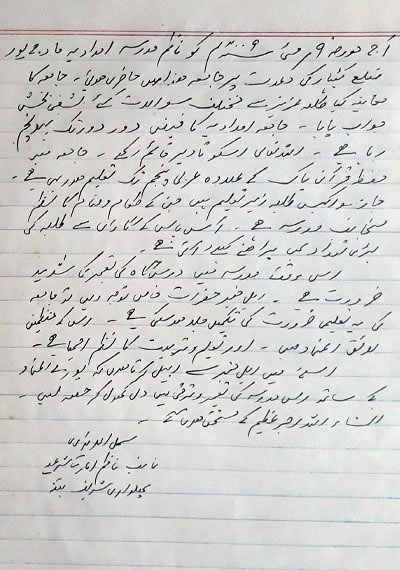 آج مورخہ ۹ مئی ۲۰۰۹ء کو ناظم مدرسہ امدادیہ مادھے پور
ضلع کٹیہار کی دعوت پر جامعہ ھذا میں حاضری ھوئی۔ جامعہ کا
معاینہ کیا طلبہ عزیز سے مختلف سوالات کئے تشفی بخش
جواب پایا۔ جامعہ امدادیہ کا فیض دور دور تک پہونچ
رہا ہے۔ اللہ تعالی اسکو تا دیر قائم رکھے۔ جامعہ میں
حفظ قرآن پاک کے علاوہ عربی پنجم تک تعلیم ہو رہی ہے۔
چار سو اکیس طلبہ زیر تعلیم ہیں جن کے طعام و قیام کا نظم
منجانب مدرسہ ہے۔ آس پاس کے گاؤں سے طلبہ کی
بڑی تعداد بھی پڑھنے کیلئے آتی ہے۔
اس وقت مدرسہ میں درسگاہ کی تعمیر کی شدید
ضرورت ہے۔ اہل خیر حضرات خاص توجہ دیں تو جامعہ
کی یہ تعلیمی ضرورت کی تکمیل جلد ہو سکتی ہے۔ اس کے منتظمین
لائق اعتماد ہیں۔ اور تعلیم و تربیت کا نظم اچھا ہے۔
اسلئے میں اہل خیر سے اپیل کرتا ھوں کہ پورے اعتماد
کے ساتھ اس مدرسہ کی تعمیر و ترقی میں دل کھول کر حصہ لیں۔
انشاء اللہ اجر عظیم کے مستحق ھوں گے۔
سہیل احمد ندوی
نائب ناظم امارت شرعیہ
پھلواری شریف پٹنہ